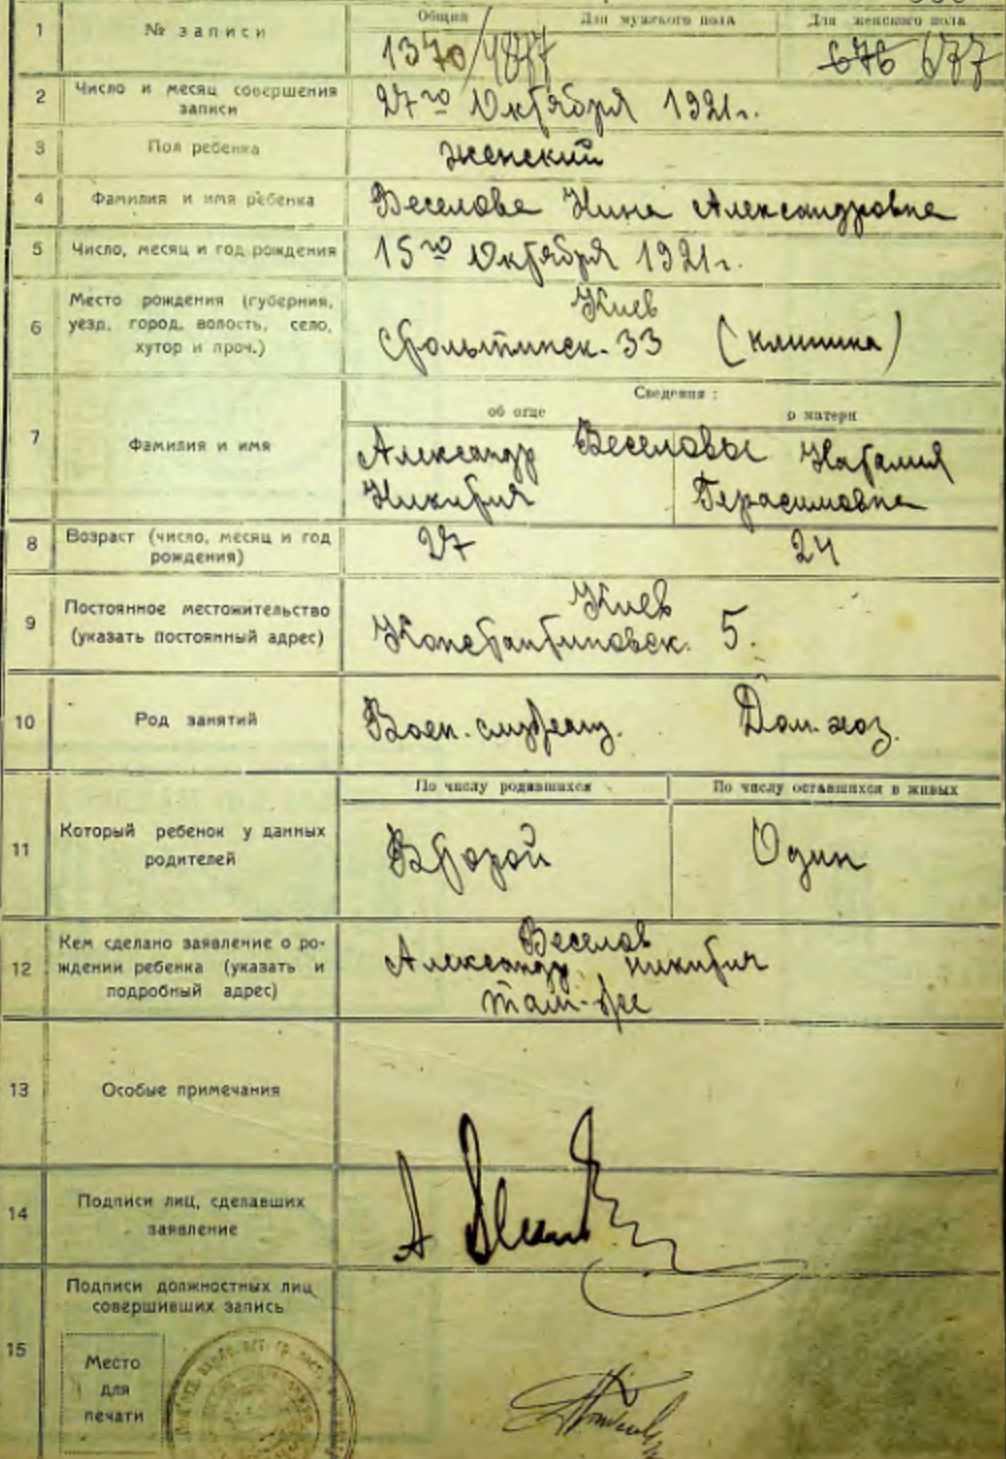 1 № записи Общий Для мужского пола Для женского пола
1370/4877 676 677
2 Число и месяц совершения записи
27го Октября 1921г.
3 Пол ребенка женский
4 Фамилия и имя ребенка Веселова Нина Александровна
5 Число, месяц и год рождения 15го Октября 1921г.
6 Место рождения (губерния,
уезд, город, волость, село,
хутор и проч.)
Киев
33 (клиника)
Сведения:
об отце о матери
7 Фамилия и имя
Александр Веселовы Наталия
Никитич Герасимовна
8 Возраст (число, месяц и год
рождения)
27 24
9 Постоянное местожительство
(указать постоянный адрес)
Киев
Константиновск. 5.
10 Род занятий Воен.-служащ. Дом. хоз.
По числу родившихся По числу оставшихся в живых
11 Который ребенок у данных
родителей
Второй Один
12 Кем сделано заявление о ро-
ждении ребенка (указать и
подробный адрес)
Веселов
Александр Никитич
там-же
13 Особые примечания
14 Подписи лиц, сделавших
заявление
Подписи должностных лиц
совершивших запись
15
Место
для
печати